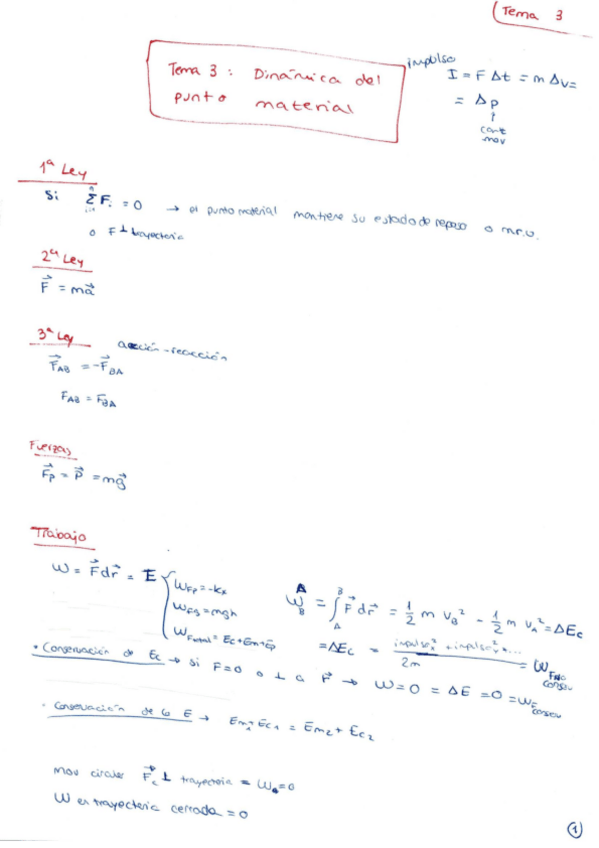 Tema 3
Tema 3 : Dinámica del
punto material
impulso
I = F Δt = m Δv =
= Δp
cant
mov
1ª Ley
Si Σ F = 0 → el punto material mantiene su estado de reposo o m.r.u.
o F ⊥ trayectoria
2ª Ley
F⃗ = ma⃗
3ª Ley acción-reacción
F⃗AB = -F⃗BA
FAB = FBA
Fuerzas
F⃗p = P⃗ = mg⃗
Trabajo
W = F⃗dr⃗ = E
WFp = -kx
WFg = mgh
WFtotal = Ec + Em + Ep
W = ∫ F⃗ dr⃗ = 1/2 m vB² - 1/2 m vA² = ΔEc
= ΔEc = impulso² + impulso² + ... / 2m = WF no conserv
• Conservación de Ec → Si F=0 o ⊥ a r⃗ → W=0 = ΔE = 0 = WF conserv
· Conservación de la E → Em1 + Ec1 = Em2 + Ec2
Mov circular F⃗c ⊥ trayectoria = W = 0
W en trayectoria cerrada = 0
1